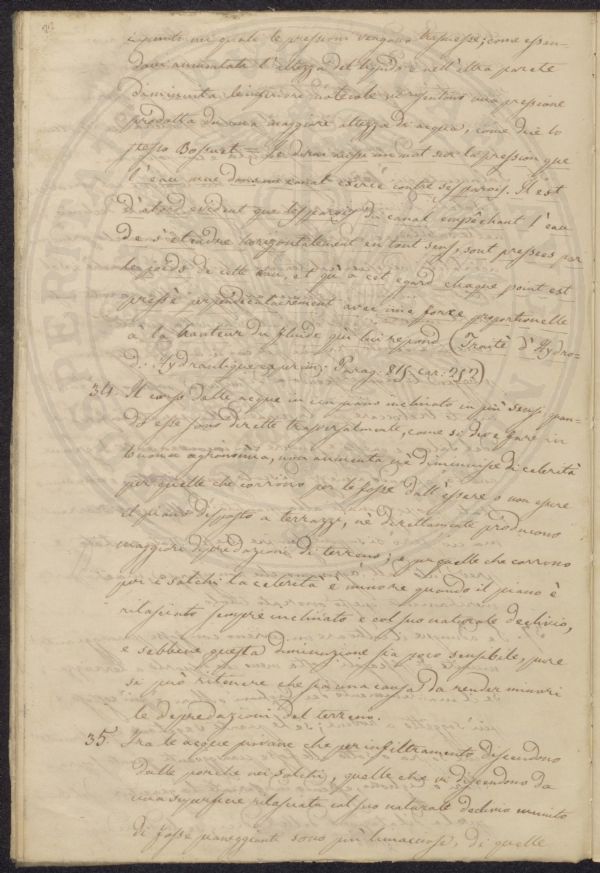 i punti nei quali le pressioni vengono trasmesse; come essen-
dovi aumentata l'altezza del liquido e nell'altra parete
diminuita le inferiori molecole ne risentono una pressione
prodotta da una maggiore altezza di acqua, come dice lo
stesso Bossut = Je dirai aussi un mot sur la pression que
l'eau mue dans un canal exerce contre ses parois. Il est
d'abord evident que les parois du canal empêchant l'eau
de s'étendre horizontalement en tout sens, sont pressées par
le poids de cette eau, et qu'à cet egard chaque point est
pressé perpendiculairement avec une force proportionelle
à la hauteur du fluide qui lui repond (Traité d'Hydro-
d. Hydraulique Parag. 815. car: 252)
34. Il corso delle acque in un piano inclinato in più sensi, quan-
do esse sono dirette trasversalmente, come si deve fare in
buona agronomia, non aumenta nè diminuisce di celerità
per quelle che corrono per le fosse dall'essere o non essere
il piano disposto a terrazzi, nè direttamente producono
maggiore depredazione di terreno; e per quelle che corrono
per i solchi la celerità è minore quando il piano è
rilasciato sempre inclinato e col suo naturale declivio,
e sebbene questa diminuzione sia poco sensibile, pure
si può ritenere che sia una causa da render minori
le depredazioni del terreno.
35. Fra le acque piovane che per infiltramento discendono
dalle porche nei solchi, quelle che vi discendono da
una superficie rilasciata col suo naturale declivio munito
di fosse pianeggianti sono più limacciose, di quelle